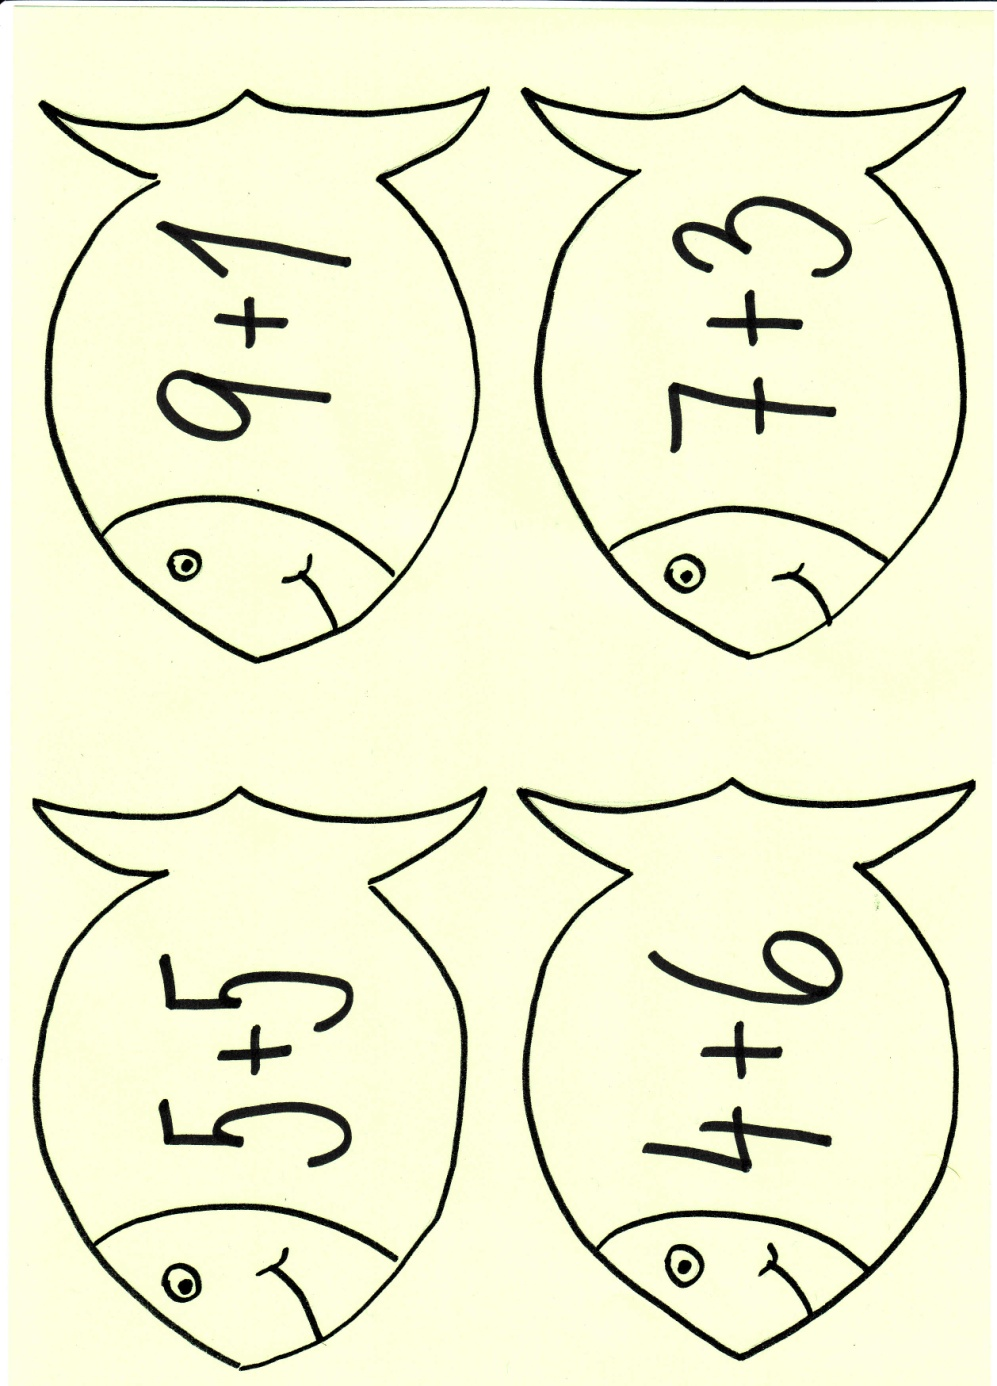 9+1
7+3
5+5
4+6